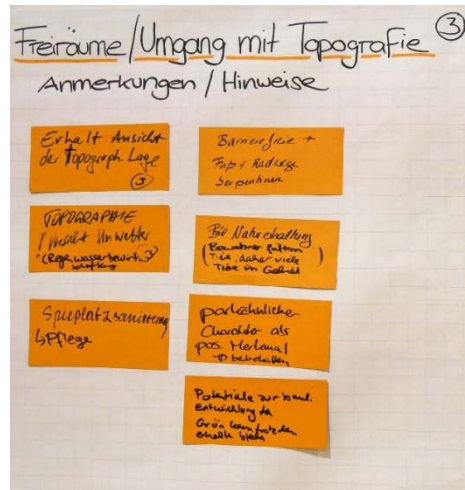 Freiräume/Umgang mit Topografie ③
Anmerkungen / Hinweise
Erhalt Ansicht
der Topograph. Lage
③
TOPOGRAPHIE
! Vorsicht Unwetter
(Regenwasserbewirt-
schaftung ③
Spielplatzsanierung
↳ Pflege
Barrierefreie +
Fuß + Radwege
Serpentinen
Bie Naturerhaltung
(Bewohner füttern
Tiere, daher viele
Tiere im Gebiet)
parkähnlicher
Charakter als
pos. Merkmal
→ beibehalten
Potentiale zur baul.
Entwicklung da
Grün kann trotzdem
erhalten bleiben